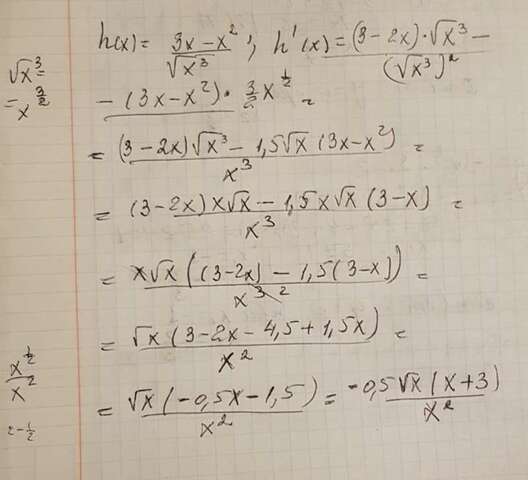 h(x) = (3x – x²)/√x³ ; h'(x) = ((3 – 2x)·√x³ –
/(√x³)²
√x³ =
= x^(3/2)
– (3x – x²)· 3/2 x^(1/2) =
= ((3 – 2x)√x³ – 1,5√x (3x – x²))/x³ =
= ((3 – 2x) x√x – 1,5x√x (3 – x))/x³ =
= x√x ((3 – 2x) – 1,5(3 – x))/x³ ² =
= √x (3 – 2x – 4,5 + 1,5x)/x² =
x^(1/2)/x²
= √x (–0,5x – 1,5)/x² = –0,5√x (x + 3)/x²